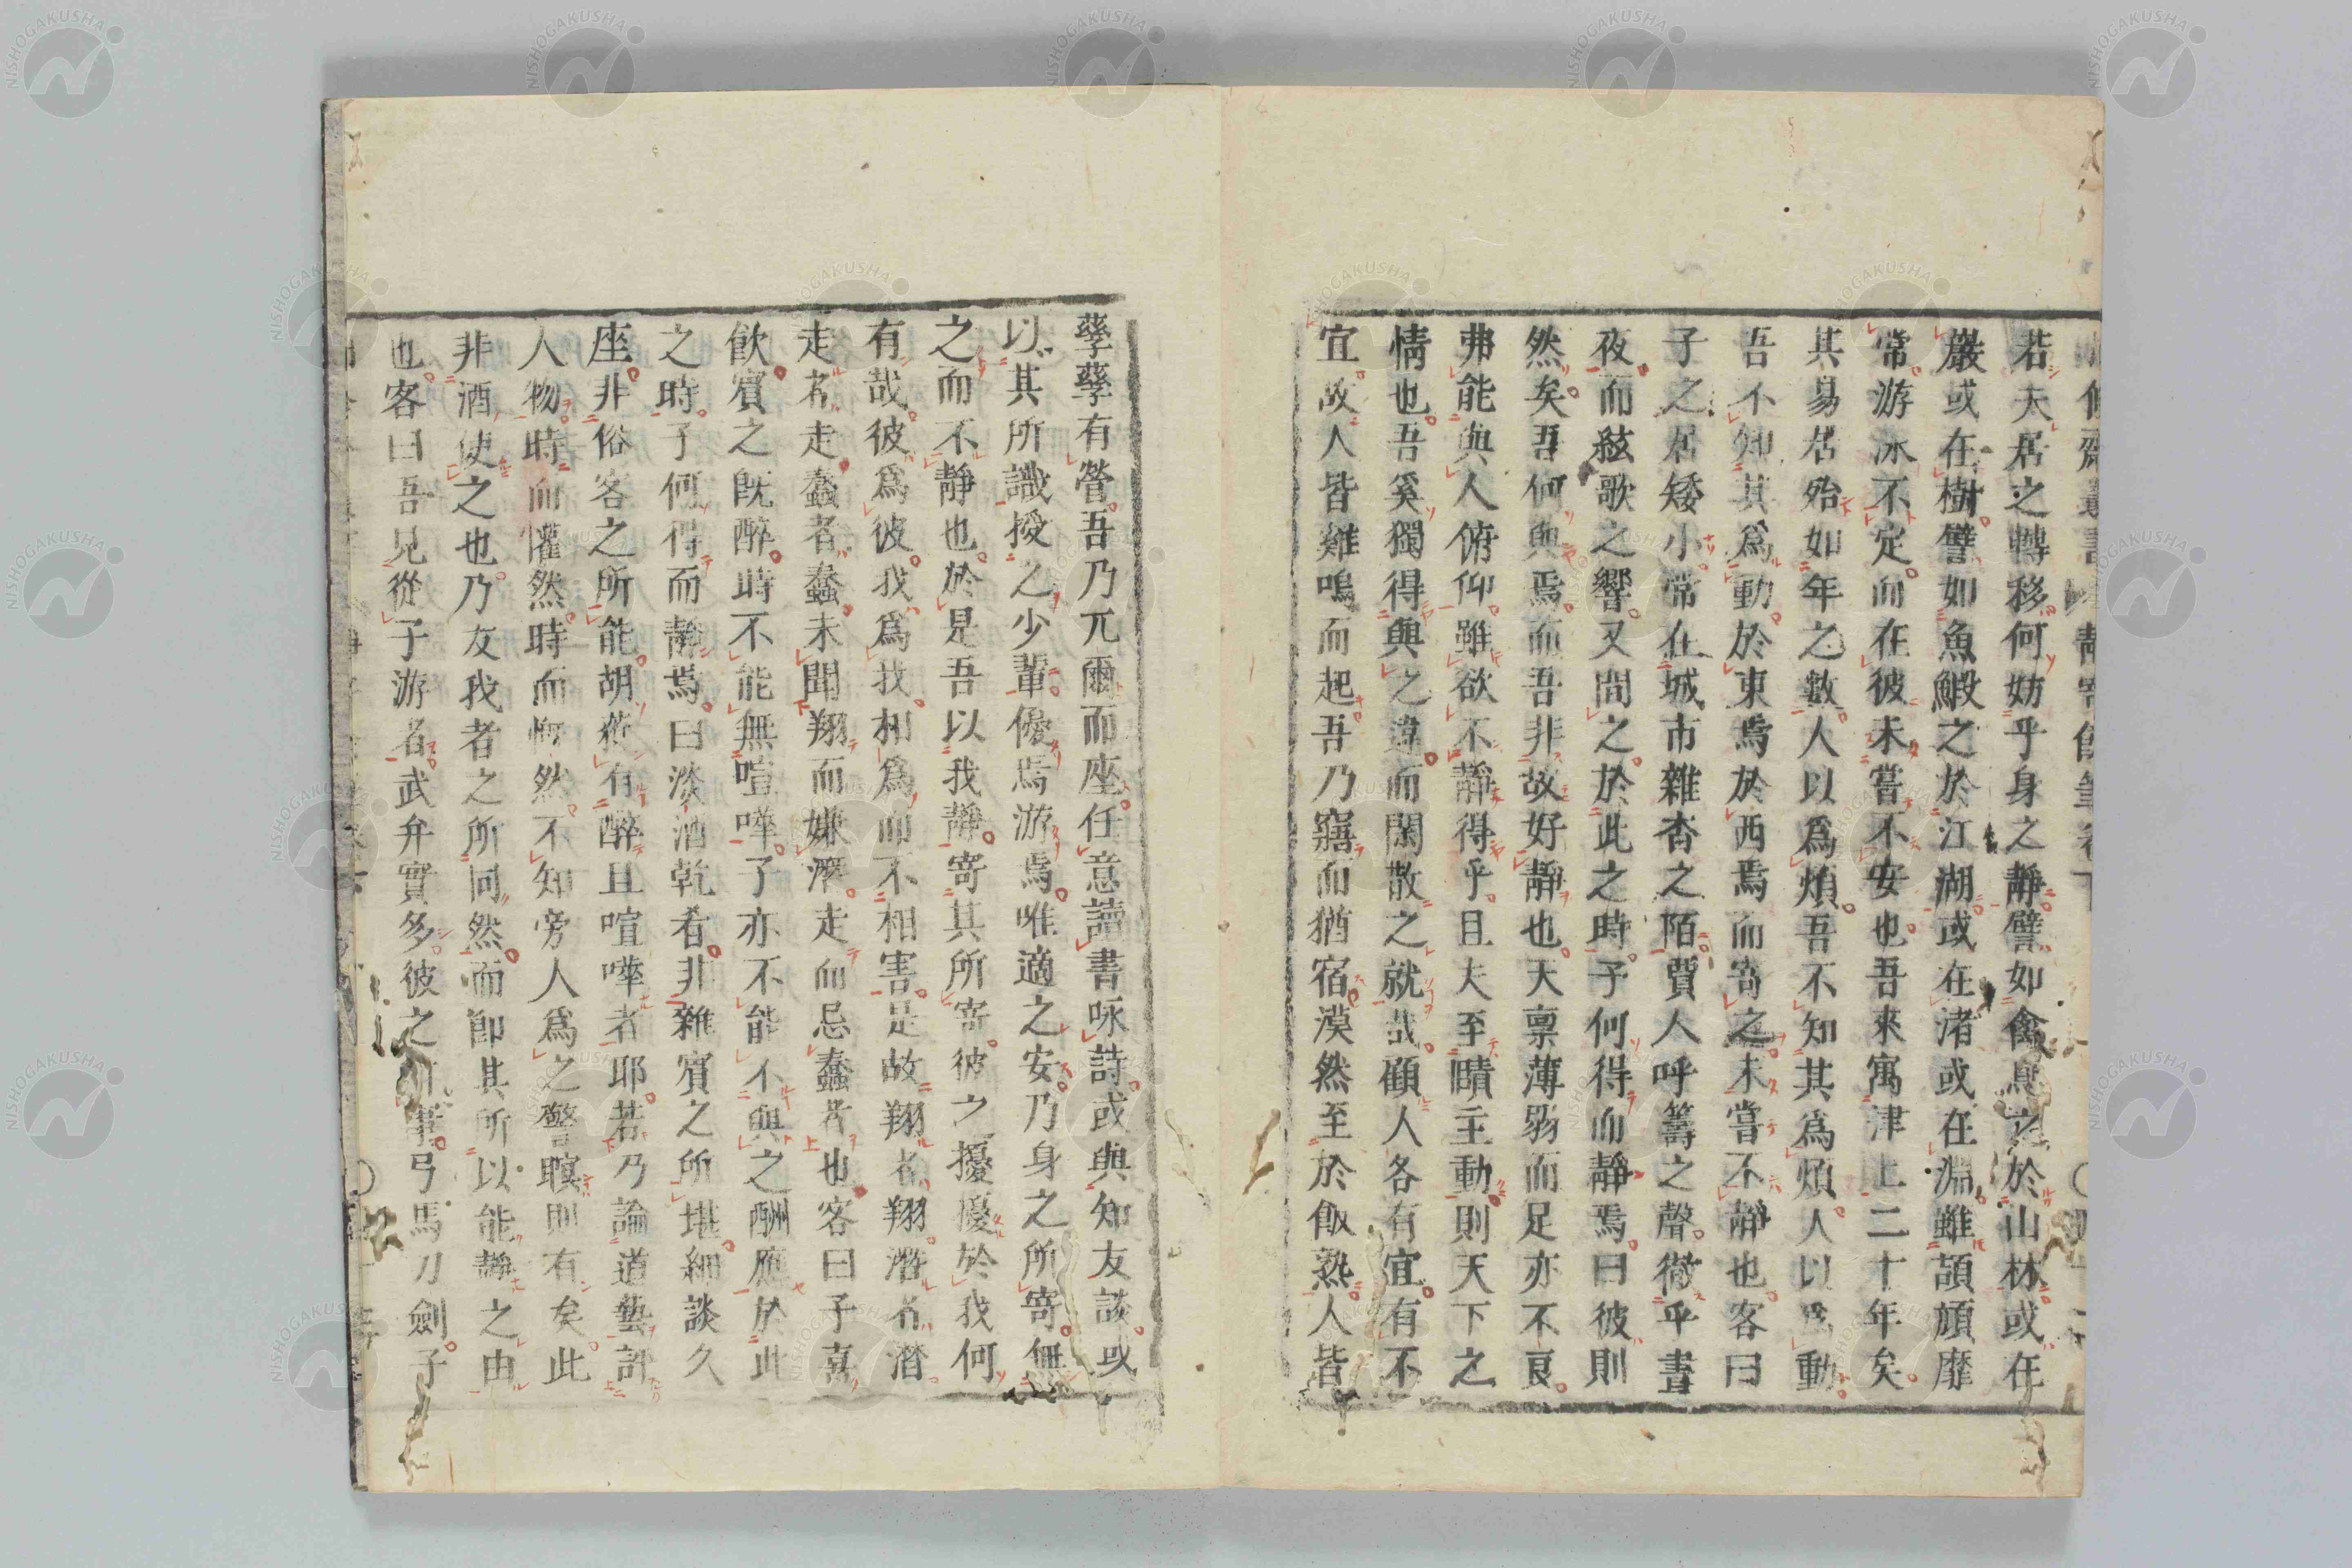 若夫居之轉移何妨乎身之靜譬如禽鳥之於山林或在
巖或在樹譬如魚鰕之於江湖或在渚或在淵雖頡頏靡
常游泳不定而在彼未嘗不安也吾來寓津上二十年矣
其易居殆如年之數人以爲煩吾不知其爲煩人以爲動
吾不知其爲動於東焉於西焉而寄之未嘗不靜也客曰
子之居矮小常在城市雜沓之陌賈人呼籌之聲徹乎晝
夜而絃歌之響又間之於此之時予何得而靜焉曰彼則
然矣吾何與焉而吾非故好靜也天禀薄弱而足亦不良
弗能與人俯仰雖欲不靜得乎且夫至賾主動則天下之
情也吾奚獨得與之違而閑散之就哉顧人各有宜有不
宜故人皆雞鳴而起吾乃寤而猶宿漠然至於飯熟人皆
孳孳有營吾乃兀爾而座任意讀書咏詩或與知友談或
以其所識授之少輩優焉游焉唯適之安乃身之所寄無
之而不靜也於是吾以我靜寄其所寄彼之擾擾於我何
有哉彼爲彼我爲我相爲而不相害是故翔者翔潛者潛
走者走蠢者蠢未聞翔而嫌潛走而忌蠢者也客曰子喜
飲賓之既醉時不能無喧嘩了亦不能不與之酬應於此
之時子何得而靜焉曰淡酒乾看非雜賓之所堪細談久
座非俗客之所能胡有醉且喧嘩者耶若乃論道藝許
人物時而懽然時而慨然不知旁人爲之警則有矣此
非酒使之也乃友我者之所同然而即其所以能靜之由
也客曰吾見從子游者武弁實多彼之所事弓馬刀劍子